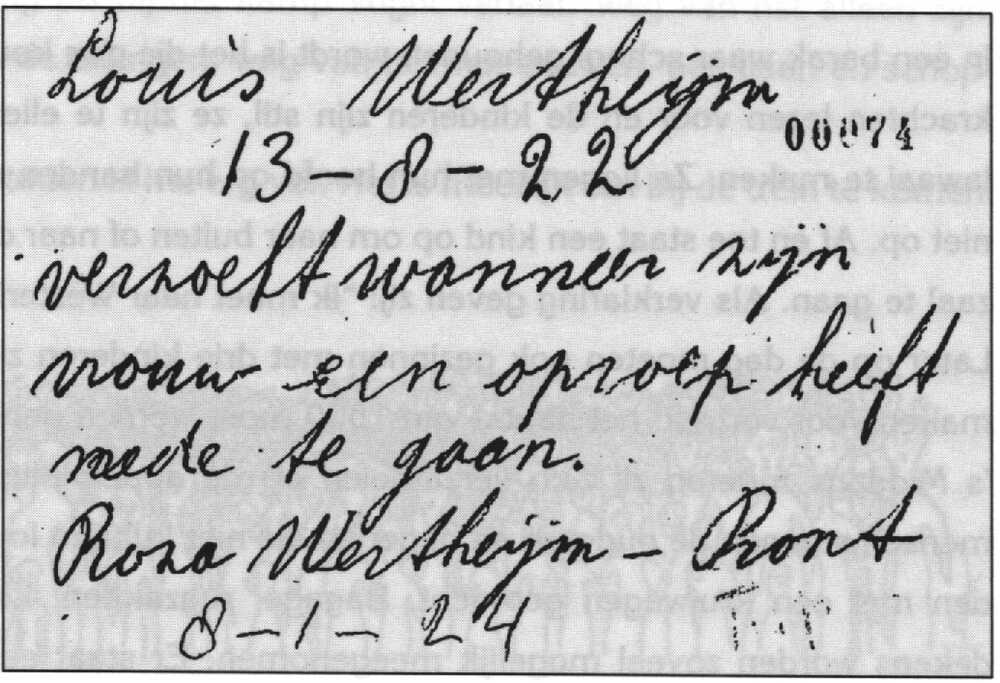 Louis Wertheym
00074
13-8-22
verzoekt wanneer zijn
vrouw een oproep heeft
mede te gaan.
Roza Wertheym - Pront
8-1-24